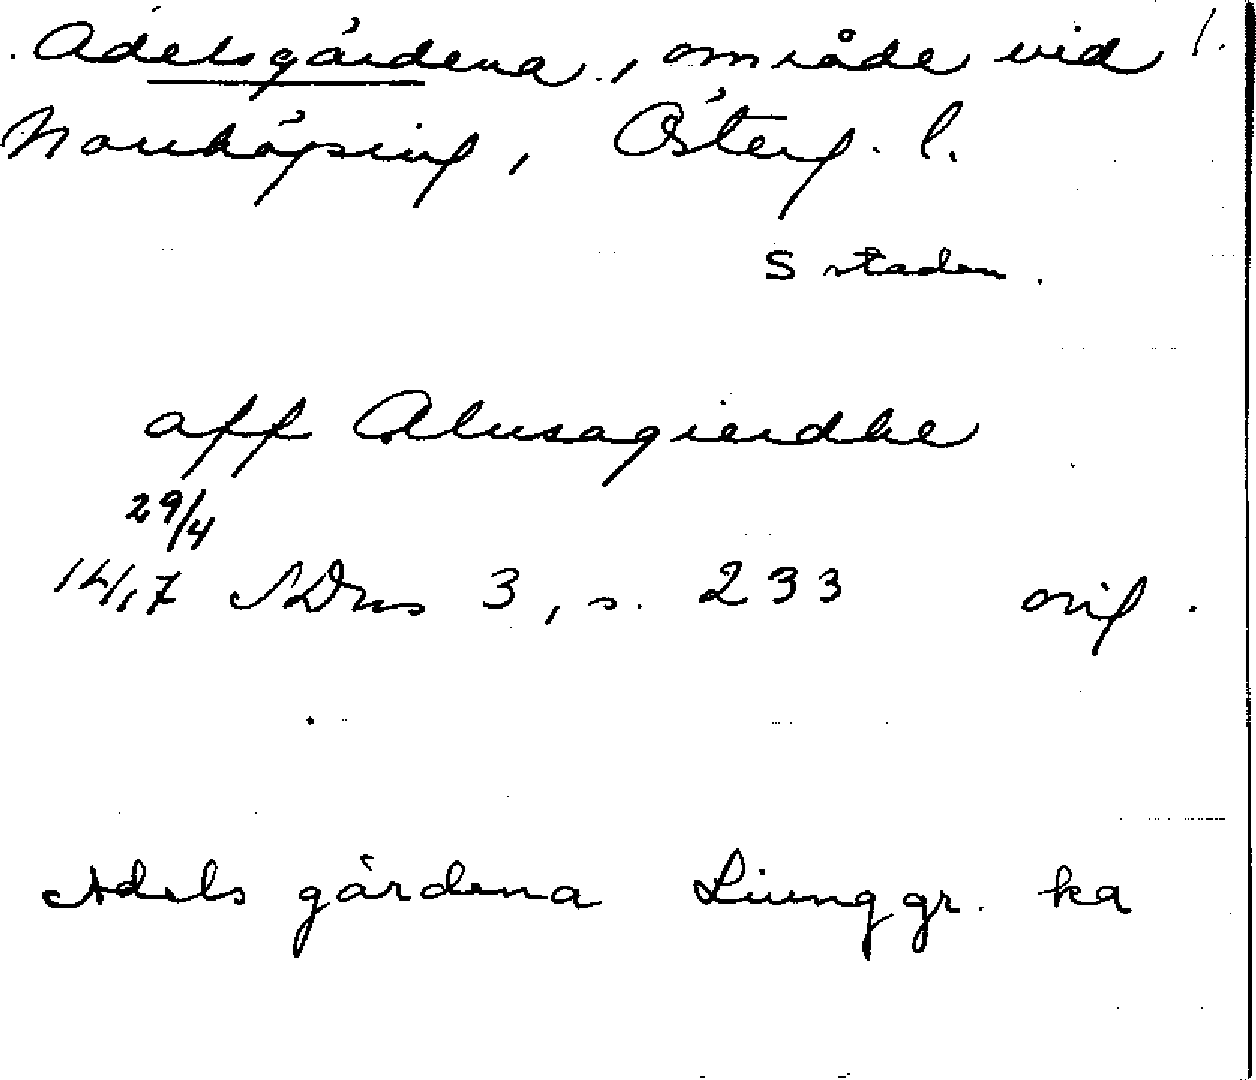 Adelsgärdena, område vid 1.
Norrköping, Österg. l.
S staden.
aff Alusagierdhe
29/4
14/17 SDns 3, s. 233 orig.
Adels gärdena Liunggr. ka